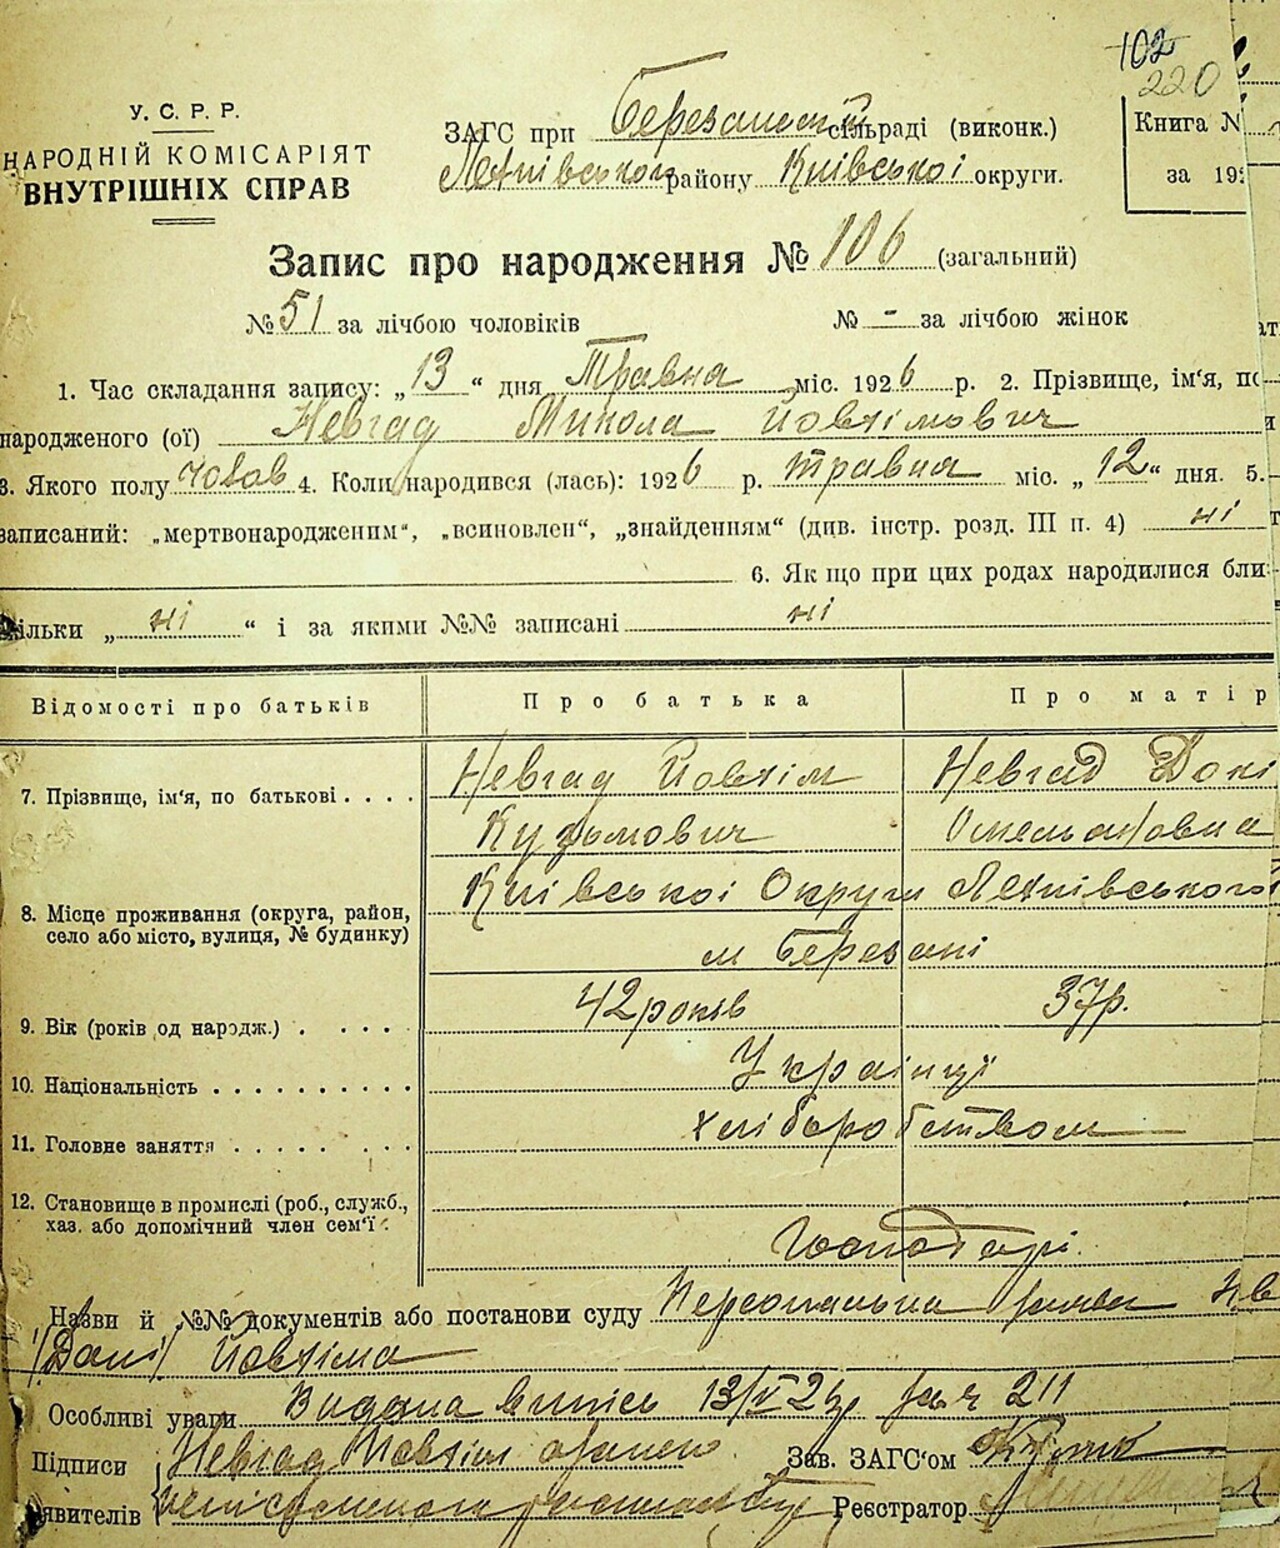 102
220
У. С. Р. Р.
НАРОДНІЙ КОМІСАРІЯТ
ВНУТРІШНІХ СПРАВ
ЗАГС при сільраді (виконк.)
району Київської округи.
Книга №
за 192
Запис про народження № 106 (загальний)
№ 51 за лічбою чоловіків № - за лічбою жінок
1. Час складання запису: „13“ дня Травня міс. 1926 р. 2. Прізвище, ім'я, по
народженого (ої) Невгад Микола Йовхімович
3. Якого полу чолов 4. Коли народився (лась): 1926 р. травня міс. „12“ дня. 5.
записаний: „мертвонародженим“, „всиновлен“, „знайденням“ (див. інстр. розд. III п. 4) ні
6. Як що при цих родах народилися бли
кільки „ні“ і за якими №№ записані ні
Відомості про батьків Про батька Про матір
7. Прізвище, ім'я, по батькові . . . . Невгад Йовхім Невгад
Кузьмович Омельяновна
8. Місце проживання (округа, район, село або місто, вулиця, № будинку) Київської Округи
м Березані
9. Вік (років од народж.) . . . . . 42 років 37 р.
10. Національність . . . . . . . . . . Українці
11. Головне заняття . . . . . . . . хліборобством
12. Становище в промислі (роб., служб., хаз. або допомічний член сем'ї . Господарі.
Назви й №№ документів або постанови суду Персональна заява
Йовхіма
Особливі уваги Видана випись 13/V 26 р за № 211
Підписи Невгад Йовхім Зав. ЗАГС'ом
явителів Реєстратор